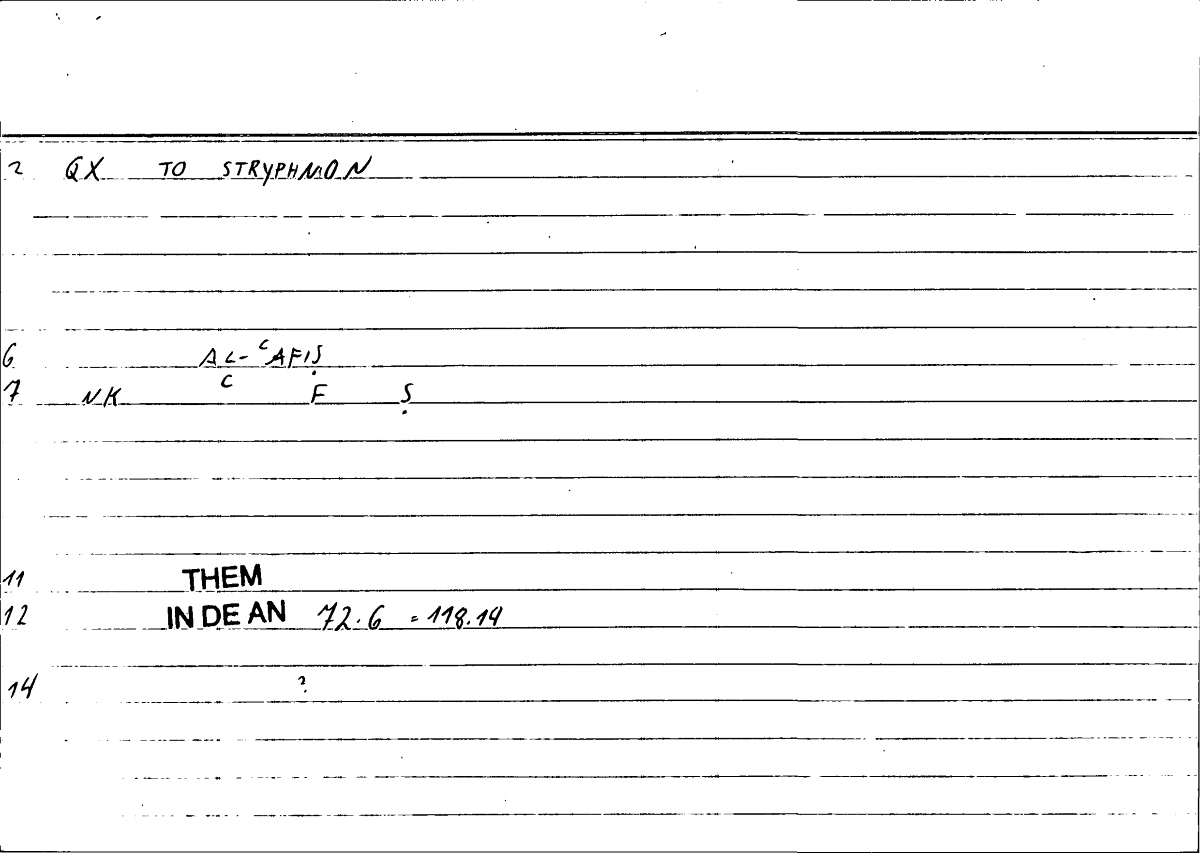 2 QX TO STRYPHNON
6 AL-ʿAFIṢ
7 NK ʿ F Ṣ
11 THEM
12 IN DE AN 72.6 = 118.14
14 ?